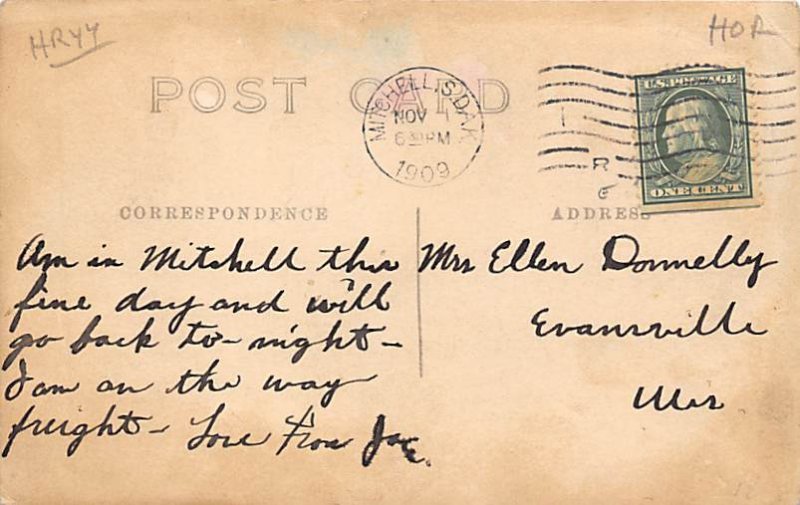 HRYY
HOR
POST CARD
MITCHELL, S.DAK.
NOV 1
6 30 PM
1909
U.S. POSTAGE
ONE CENT
R
CORRESPONDENCE
ADDRESS
Am in Mitchell this
fine day and will
go back to-night-
I am on the way
freight- Love From
Mrs Ellen Donnelly
Evansville
Wis